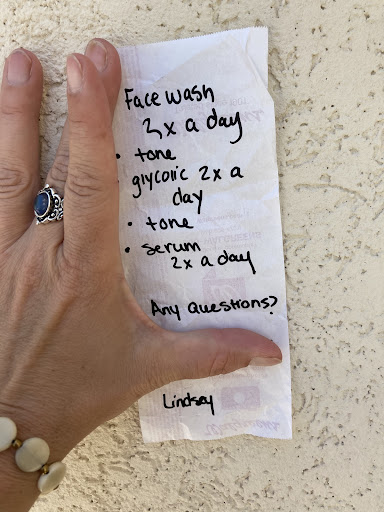 Face wash
2x a day
• tone
• glycolic 2x a
day
• tone
• serum
2x a day
Any Questions?
Lindsay